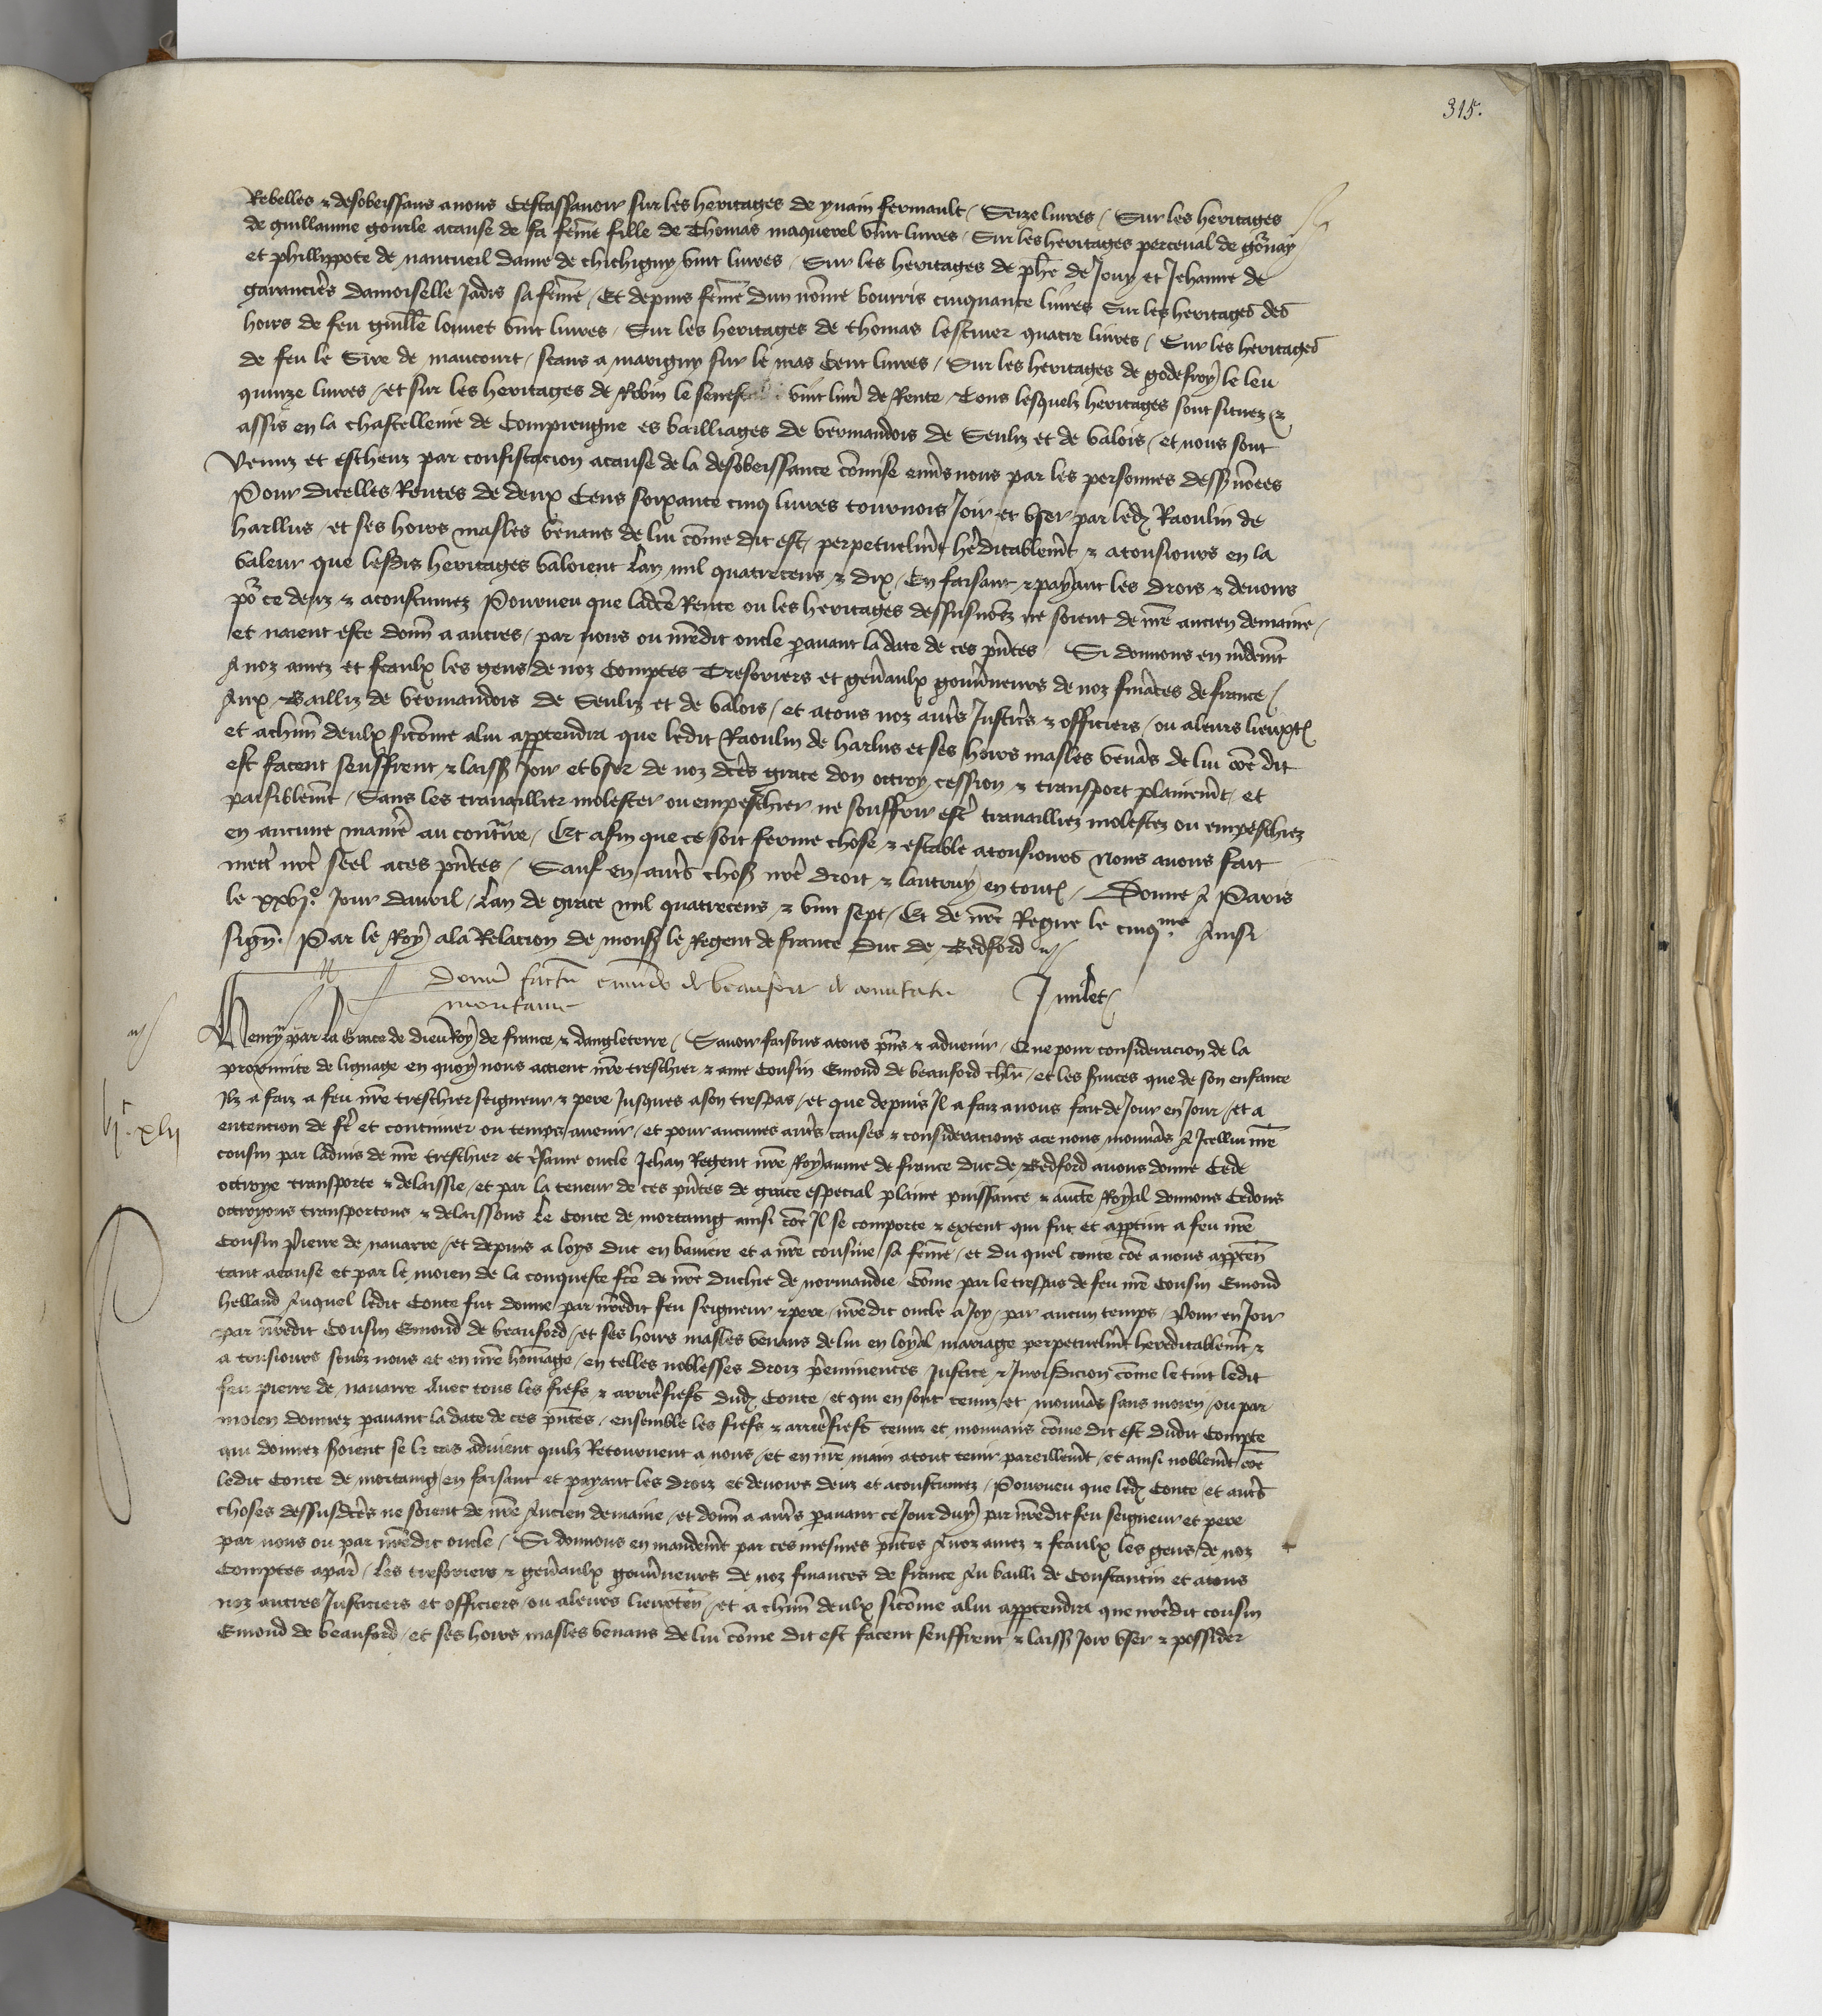 315.
Rebelles & desobeissans a nous Cestassavoir sur les heritages de yvain fermault / Seize livres / Sur les heritages
de guillaume gourle a cause de sa fēme fille de Thomas maquerel vint livres / Sur les heritages perceval de
et phillippote de nantueil dame de chichigny vint livres / Sur les heritages de phē de Jouy et Jehanne de
garancieres damoiselle Jadis sa fēme / Et depuis fēme dun nōme bourris cinquante livres Sur les heritages des
hoirs de feu guillē louvet vint livres / Sur les heritages de thomas lescuier quatre livres / Sur les heritages
de feu le Sire de maucourt / seans a marigny sur le mas Cent livres / Sur les heritages de godefroy le leu
quinze livres / et sur les heritages de Robin le vint livr̄ de Rente / Tous lesquelz heritages sont situez &
assis en la chastellenie de Compiengne es bailliages de vermandois de Senliz et de valois / et nous sont
venuz et escheuz par confiscacion a cause de la desobeissance cōmise env̄s nous par les personnes dess nōmees
Pour dicelles Rentes de deux Cens soixante cinq livres tournois Joir et user par led Raoulin de
harllus / et ses hoirs masles venans de lui cōme dit est / perpetuelmt heditablemt & a tousiours en la
valeur que lesdis heritages valoient Lan mil quatrecens & dix / En faisant & payant les drois & devoirs
po ce deuz & acoustumez Pourveu que ladcē Rente ou les heritages dessusnōmez ne soient de nrē ancien demaine /
et naient este donn a autres / par nous ou nrēdit oncle pavant la date de ces pntes Si donnons en mdemt
A noz amez et feaulx les gens de noz Comptes Tresoriers et gen̄aulx gouvneurs de noz fināces de france /
Aux Bailliz de vermandois de Senliz et de valois / et a tous noz autr̄s Justicr̄s & officiers / ou a leurs lieuxt
et a chūn deulx sicōme a lui appartendra que ledit Raoulin de harlus et ses hoirs masles venās de lui cōe dit
est facent seuffrent & laiss Joir et user de noz dcēs grace don ottroy cession & transport plainemt / et
paisiblemt / Sans les travaillier molester ou empeschier ne souffrir estr̄ travailliez molestez ou empeschiez
en aucune manier̄ au contraire / Et afin que ce soit ferme chose & estable a tousiours Nous avons fait
mettr̄ nrē seel a ces pntes / Sauf en autr̄s chos nrē droit & lautruy en tout / Donne A Paris
le xxvie Jour davril / Lan de grace mil quatrecens & vint sept / Et de nrē Regne le cinqme Ainsi
sign. Par le Roy a la Relacion de mons le Regent de france Duc de Bedford
Donū factū emūdo de beaufort de comitatu J milet
moritanie
Henry par la Grace de Dieu Roy de france & dangleterre / Savoir faisons a tous pns & advenir / Que pour consideracion de la
proximite de lignage en quoy nous actient nrē treschier & ame Cousin Emond de beauford chlr / et les svices que de son enfance
Il a faiz a feu nrē treschier seigneur & pere Jusques a son trespas / et que depuis Il a faiz a nous fait de Jour en Jour / et a
vic. xlii
entencion de fr̄e et continuer ou temps avenir / et pour aucunes autr̄s causes & consideracions a ce nous mouvās A Icellui nrē
cousin par ladvis de nrē treschier et tsame oncle Jehan Regent nrē Royaume de france duc de Bedford avons donne Cede
ottroye transporte & delaissie / et par la teneur de ces pntes de grace especial plaine puissance & auctē Royal donnons Cedons
ottroyons transportons & delaissons Le Conte de mortaing ainsi cōe Il se comporte & extent qui fut et appartint a feu nrē
Cousin Pierre de navarre / et depuis a loys duc en baviere et a nrē cousine sa fēme / et du quel conte cōe a nous apparten
tant a cause et par le moien de la conqueste fcē de nrē Duchie de normandie / Cōme par le trespas de feu nrē Cousin Emond
helland Auquel ledit Conte fut donne par nrēdit feu seigneur & pere / nrēdit oncle a Joy / par aucun temps / Pour en Joir
par nrēdit Cousin Emond de beauford / et ses hoirs masles venans de lui en loyal mariage perpetuelmt hereditablemt &
a tousiours soubz nous et en nrē hōmage / en telles noblesses droiz preeminences Justice & Jurisdicion cōme le tint ledit
feu pierre de navarre Avec tous les fiefs & arrierefiefs dud Conte / et qui en sont tenuz et mouvās sans moien / ou par
moien donnez pavant la date de ces pntes / ensemble les fiefs & arrierefiefs tenuz et mouvans cōme dit est dudit Compte
qui donnez soient se le cas advient quilz Retournent a nous / et en nrē main a tout tenir pareillemt / et ainsi noblemt cōe
ledit Conte de mortaing / en faisant et payant les droiz et devoirs deuz et acoustumez / Pourveu que led Conte et autr̄s
choses dessusdcēs ne soient de nrē Ancien demaine / et donn a autr̄s pavant ce Jour duy par nrēdit feu seigneur et pere
par nous ou par nrēdit oncle / Si donnons en mandemt par ces mesmes pntes A noz amez & feaulx les gens de noz
Comptes a par / Les tresoriers & gen̄aulx gouvneurs de noz finances de france Au bailli de Constantin et a tous
noz autres Justiciers et officiers / ou a leurs lieuxten / et a chūn deulx sicōme a lui appartendra que nrēdit cousin
Emond de beauford / et ses hoirs masles venans de lui cōme dit est facent seuffrent & laiss Joir user & possider